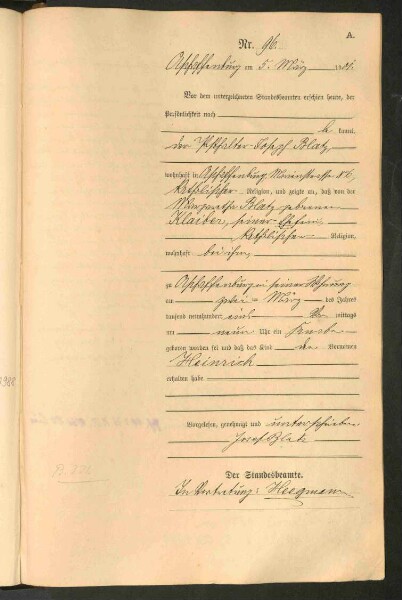 A.
Nr. 96.
Aschaffenburg am 5. März
Vor dem unterzeichneten Standesbeamten erschien heute, der
Persönlichkeit nach
be kannt,
der Joseph Platz
wohnhaft in Aschaffenburg
katholischer Religion, und zeigte an, daß von der
Margaretha Platz geborenen
Klaiber, seiner Ehefrau
katholischer Religion,
wohnhaft bei ihm,
zu Aschaffenburg in seiner Wohnung
am zwei März des Jahres
tausend neunhundert eins Vor mittags
um neun Uhr ein Knabe
geboren worden sei und daß das Kind den Vornamen
Heinrich
erhalten habe
Vorgelesen, genehmigt und unterschrieben
Josef Platz
Der Standesbeamte.
In Vertretung: Heegmann